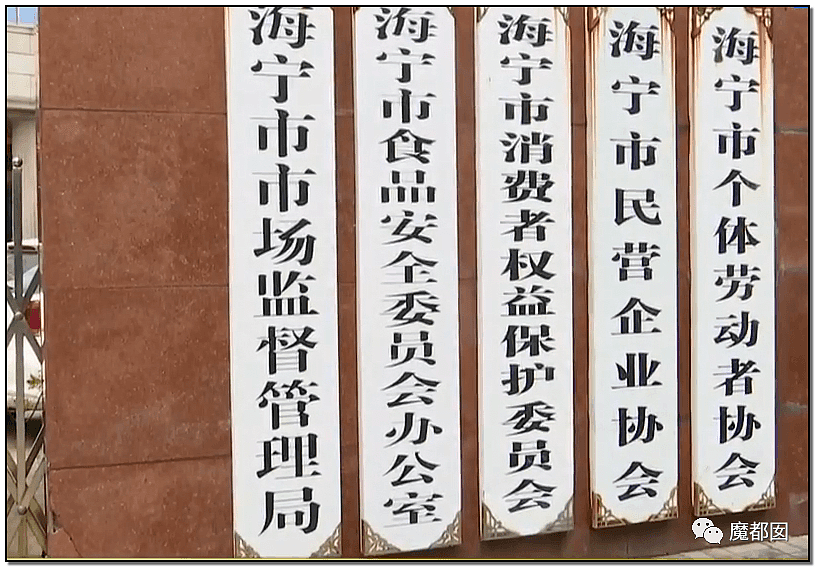 海宁市市场监督管理局
海宁市食品安全委员会办公室
海宁市消费者权益保护委员会
海宁市民营企业协会
海宁市个体劳动者协会
魔都囡